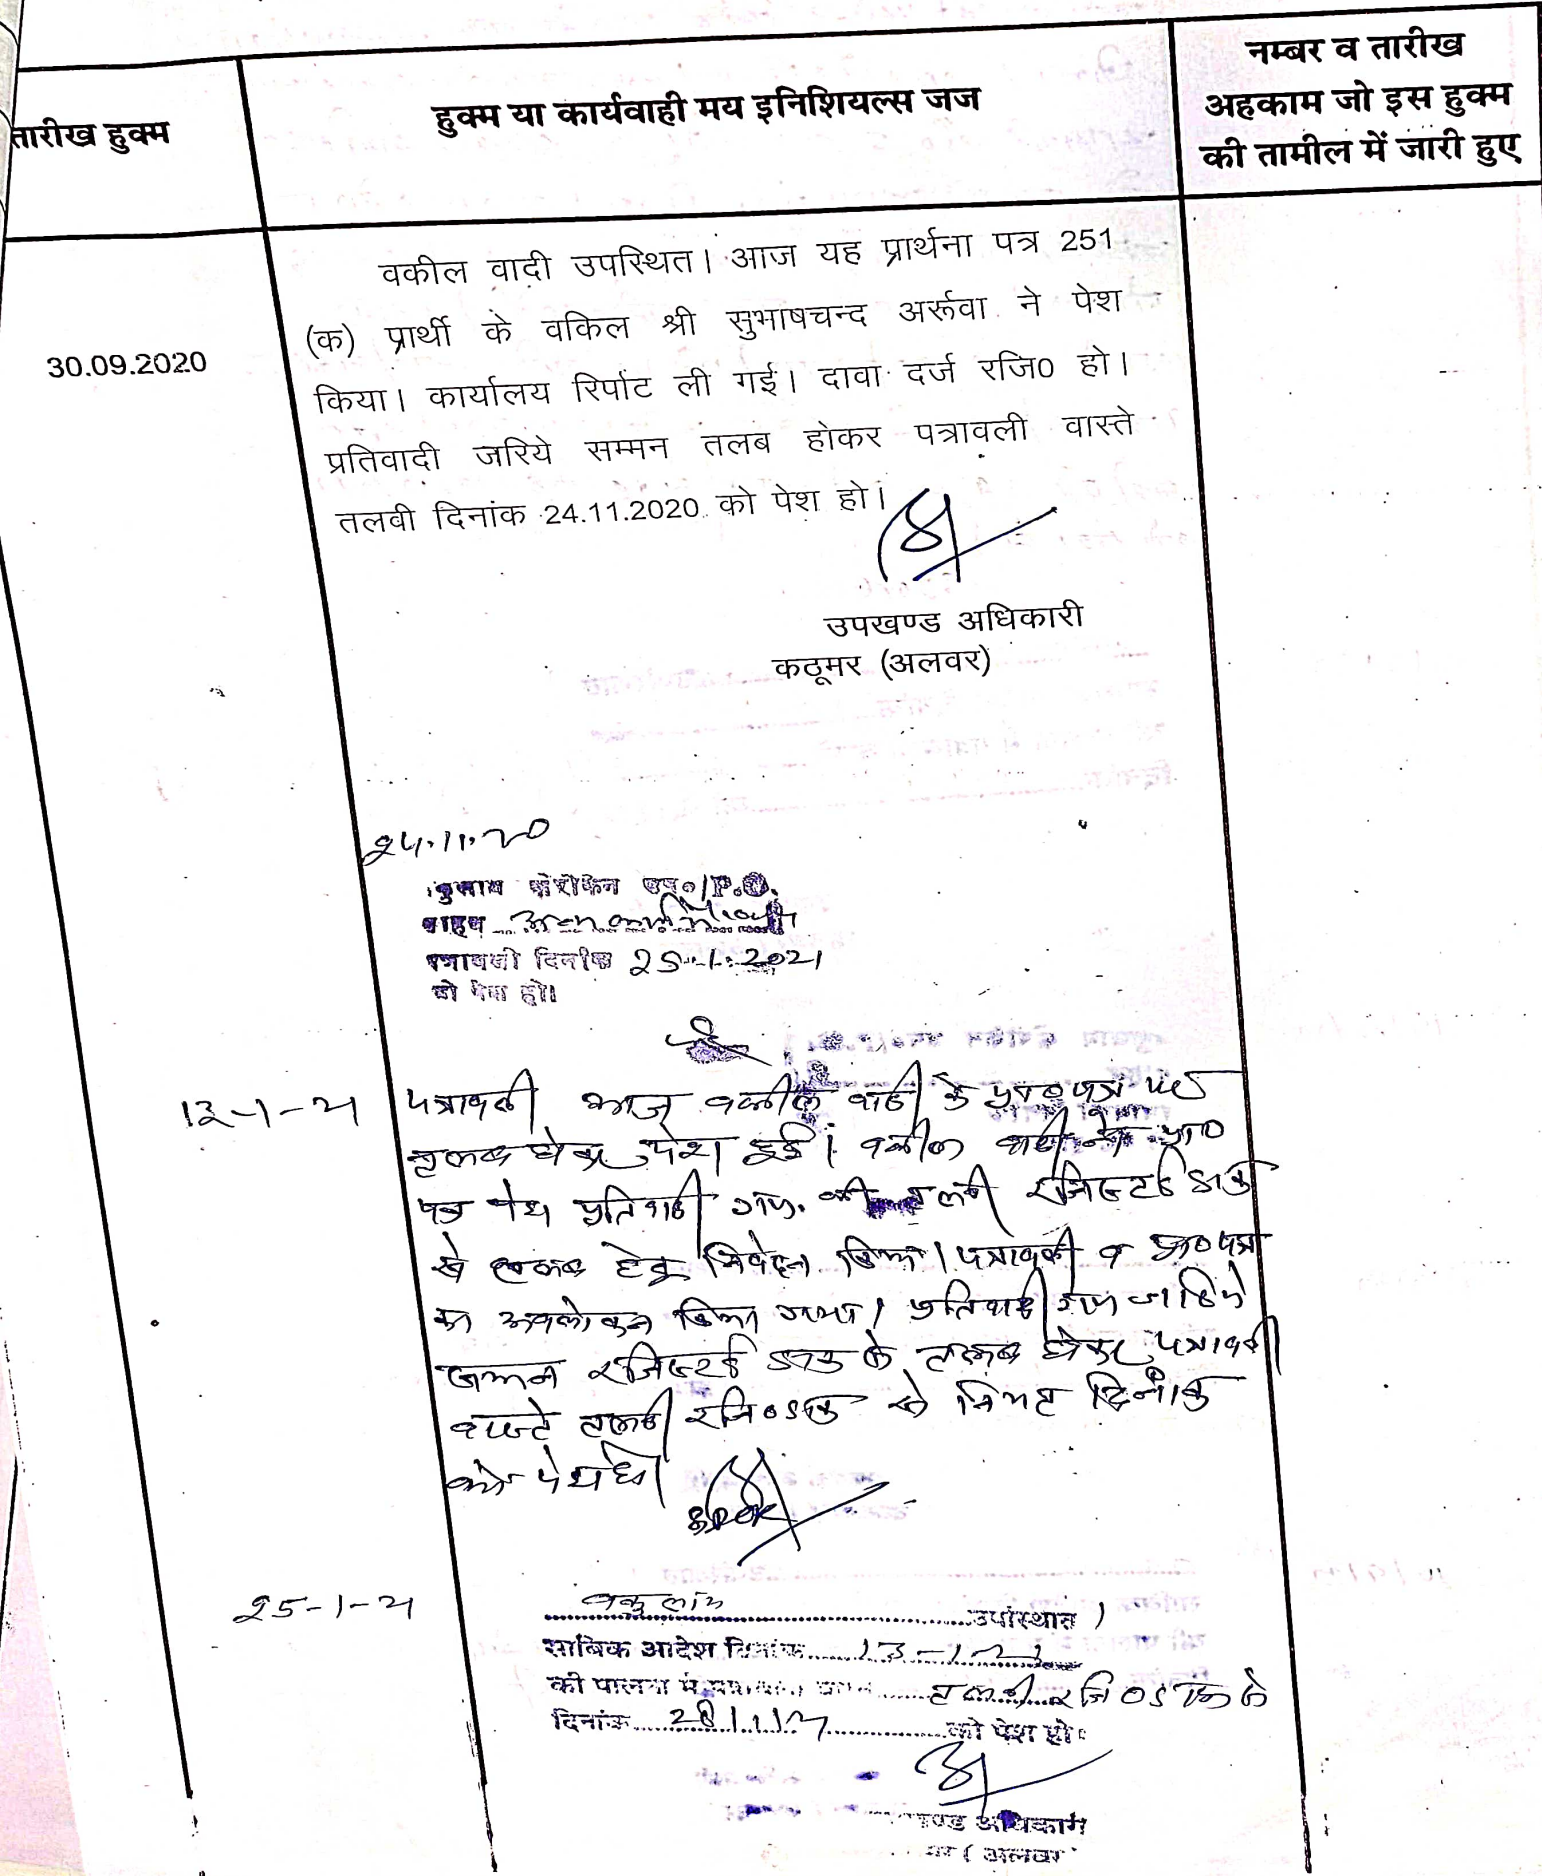 तारीख हुक्म
हुक्म या कार्यवाही मय इनिशियल्स जज
नम्बर व तारीख
अहकाम जो इस हुक्म
की तामील में जारी हुए
30.09.2020
वकील वादी उपस्थित। आज यह प्रार्थना पत्र 251
(क) प्रार्थी के वकिल श्री सुभाषचन्द अर्रूवा ने पेश
किया। कार्यालय रिर्पाट ली गई। दावा दर्ज रजि0 हो।
प्रतिवादी जरिये सम्मन तलब होकर पत्रावली वास्ते
तलवी दिनांक 24.11.2020 को पेश हो।
उपखण्ड अधिकारी
कठूमर (अलवर)
24.11.20
P.O.
दिनांक 25.1.2021
को पेश हो।
13-1-21
पत्रावली आज वकील वादी के
तलब होकर पेश हुई। वकील वादी ने प्रा0
पत्र पेश प्रतिवादी गण की तलबी रजिस्टर्ड डाक
से तलब हेतु निवेदन किया। पत्रावली व प्रा0पत्र
का अवलोकन किया गया। प्रतिवादी गण जरिये
सम्मन रजिस्टर्ड डाक के तलब होकर पत्रावली
वास्ते तलबी रजि0 डाक से नियत दिनांक
को पेश हो
25-1-21
वकुलाय उपस्थित।
साबिक आदेश दिनांक 13-1-21
की पालना में तलबी रजि0 डाक के
दिनांक को पेश हो।
अधिकारी
(अलवर